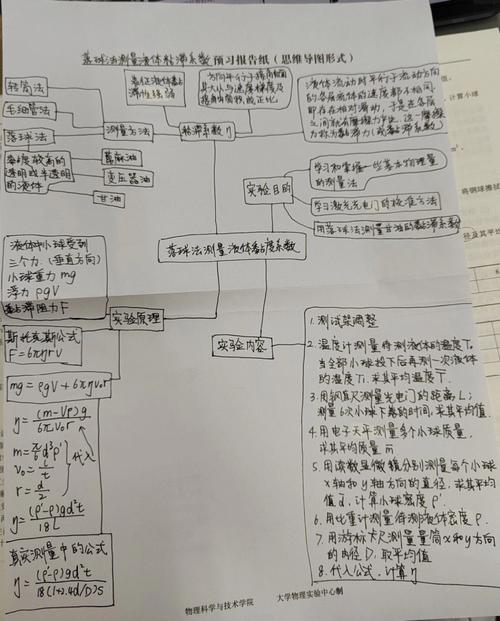 落球法测量液体粘滞系数预习报告纸(思维导图形式)
转筒法
毛细管法
落球法
粘度较高的
透明或半透明
的液体
测量方法
蓖麻油
变压器油
甘油
表征液体黏
滞性强弱
粘滞系数η
方向平行于接触面
其大小与速度梯度及
接触面面积成正比
液体流动时平行于流动方向
的各层流体的速度都不相同
即存在相对滑动,于是在各层
之间就有摩擦力产生,这一摩擦
力称为黏滞力(或黏滞系数)
实验目的
学习和掌握一些基本物理量
的测量法
学习激光光电门的校准方法
用落球法测量甘油的黏滞系数
落球法测量液体黏度系数
液体中小球受到
三个力(垂直方向)
小球重力 mg
浮力 ρgV
黏滞阻力 F
实验原理
斯托克斯公式
F=6πηrv
mg=ρgV+6πηv₀r
η=(m-Vρ)g/6πv₀r
m=π/6 d³ρ'
v₀=L/t
r=d/2
代入
η=(ρ'-ρ)gd²t/18L
真实测量中的公式
η=(ρ'-ρ)gd²t/18(1+2.4d/D)S
实验内容
1. 测试架调整
2. 温度计测量待测液体的温度T₀
当全部小球投下后再测一次液体
的温度T₁.求其平均温度T̅.
3. 用钢直尺测量光电门的距离L;
测量6次小球下落的时间,求其平均值.
4. 用电子天平测量多个小球质量,
求其平均质量m̅
5. 用读数显微镜分别测量每个小球
x轴和y轴方向的直径,求其平均
值d̅,计算小球密度ρ'.
6. 用比重计测量待测液体密度ρ.
7. 用游标卡尺测量量筒x和y方向
的内径D.取平均值
8. 代入公式,计算η
物理科学与技术学院 大学物理实验中心制
计算小球
将钢球擦拭
径及其平均